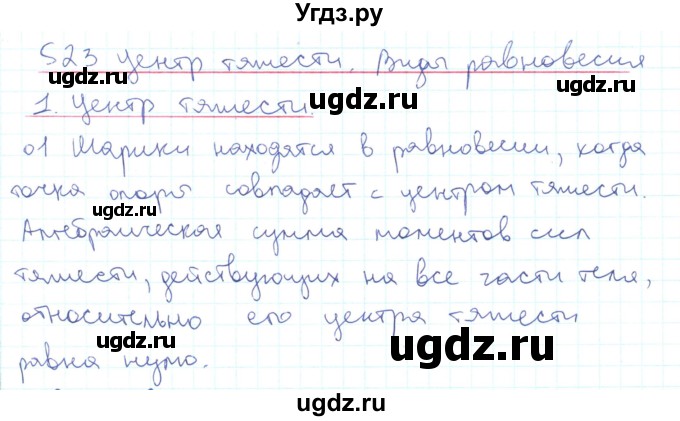 Угдз.ру
§23 Центр тяжести. Виды равновесия
ugdz.ru ugdz.ru
1. Центр тяжести.
о1 Шарики находятся в равновесии, когда
точка опоры совпадает с центром тяжести.
ugdz.ru ugdz.ru
Алгебраическая сумма моментов сил
тяжести, действующих на все части тела,
относительно его центра тяжести
равна нулю.
ugdz.ru ugdz.ru
ugdz.ru